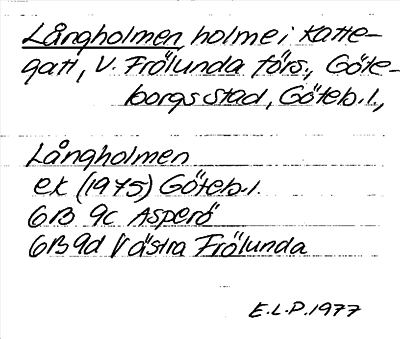 Långholmen, holme i Katte-
gatt, V. Frölunda förs., Göte-
borgs stad, Göteb. l.,
Långholmen
ek (1975) Göteb. l.
6B 9c Asperö
6B 9d Västra Frölunda
E.L.P. 1977